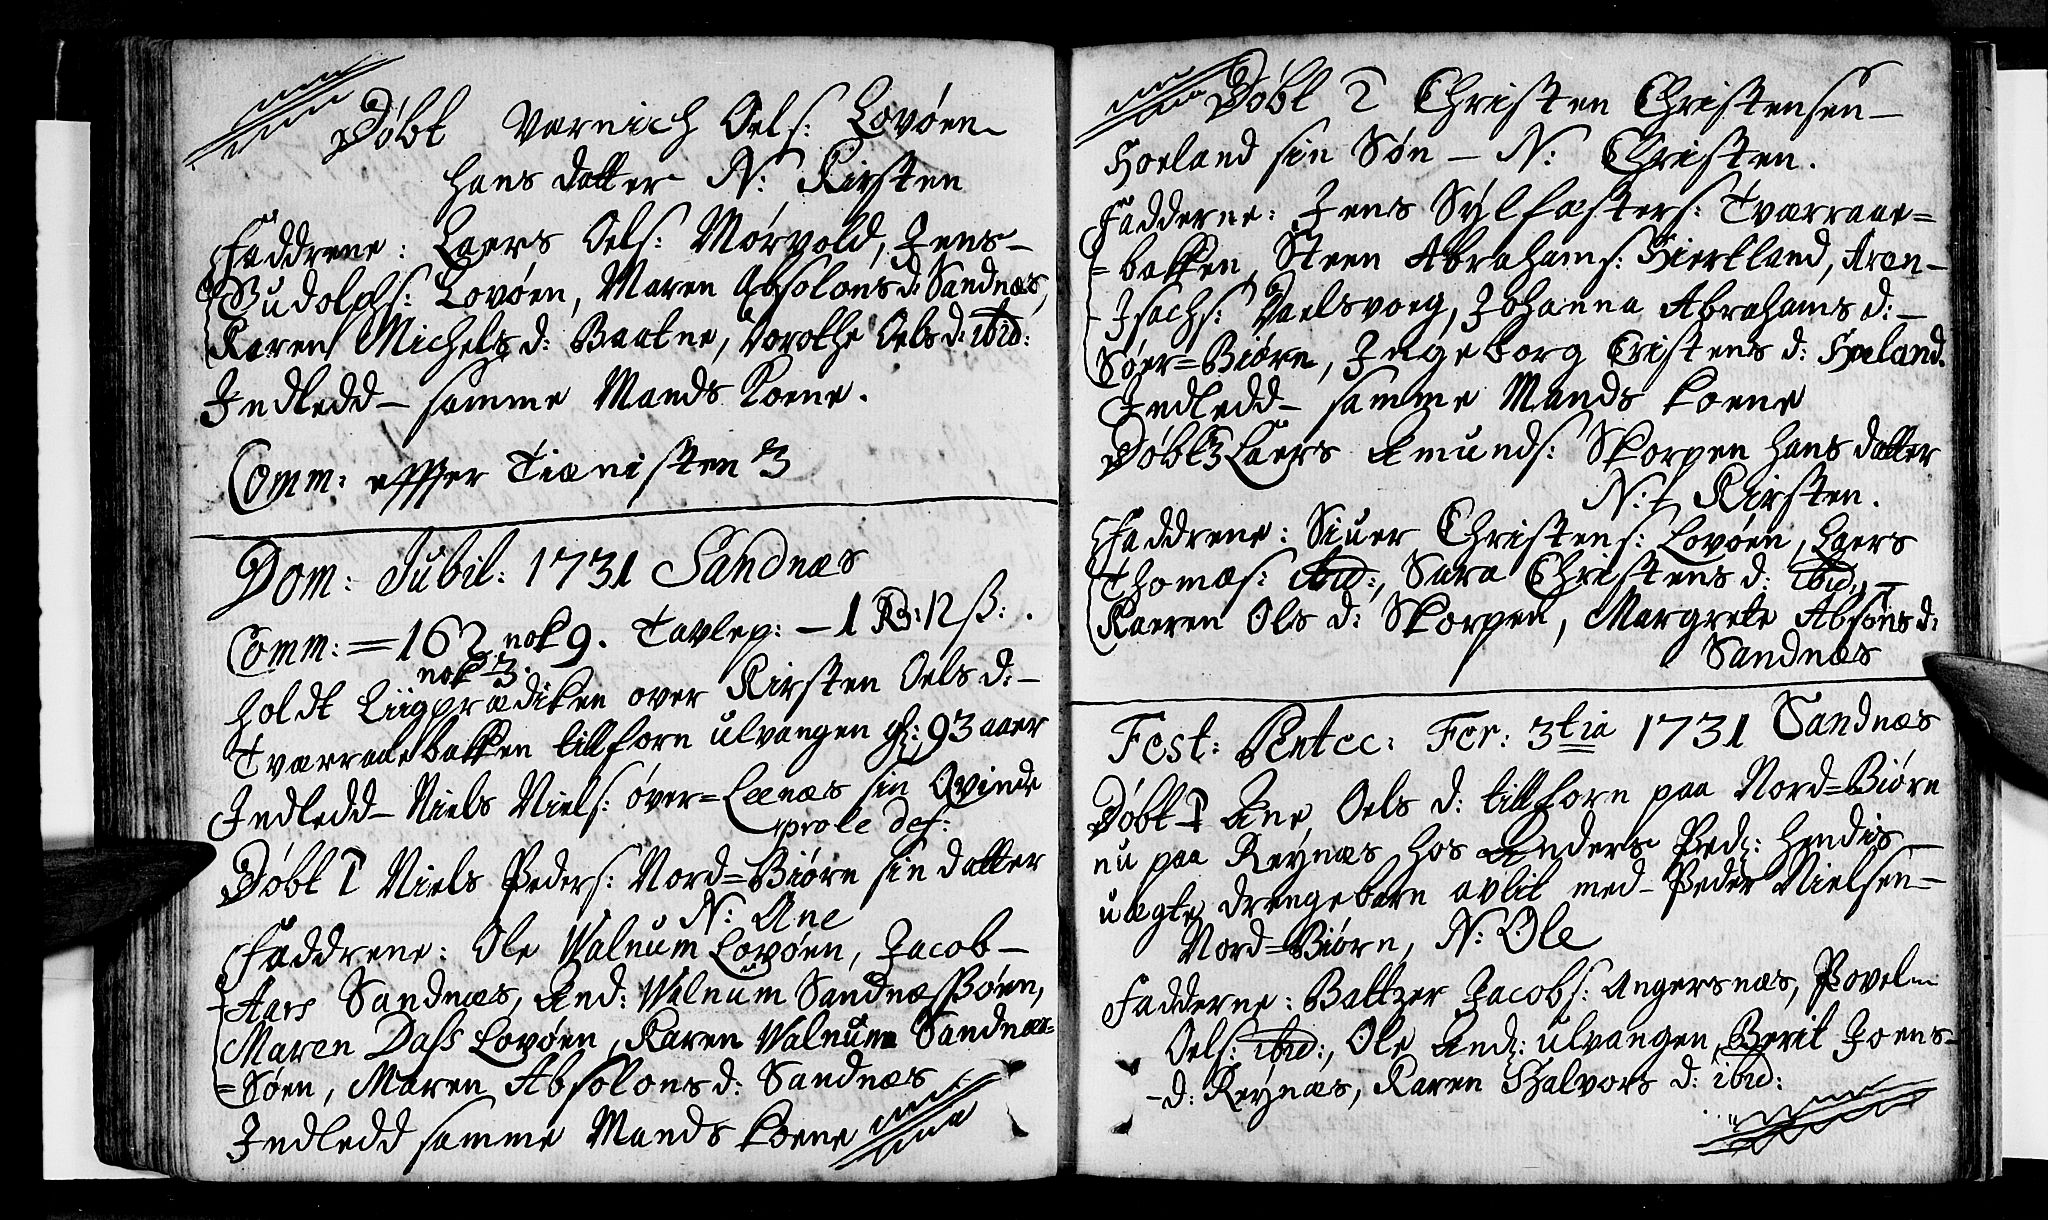 Døbt Værnich Oels: Lovøen
hans datter N: Kirsten
Faddrene: Laers Oels: Mørvold, Jens
Rudolphs: Lovøen, Maren Absolons d: Sandnæs,
Karen Michels d: Baatne, Dorothe Oels d: ibid:
Indledd samme Mands Koene.
Comm: effter Tiænisten 3
Dom: Jubil: 1731 Sandnæs
Comm: = 162 nok 9. Tavlep: – 1 Rd: 12 ß:.
nok 3.
holdt Liigprædiken over Kirsten Oels d:
Tværraaebakken tillforn ulvangen gl: 93 aaer
Indledd Niels Niels: øver=Leenæs sin Qvinde
prole def:
Døbt 1 Niels Peders: Nord=Biørn sin datter
N: Ane
Faddrene: Ole Walnum Lovøen, Jacob
Aars Sandnæs, And: Walnum Sandnæssøen,
Maren Dass Lovøen, Karen Walnum Sandnæs=
=Søen, Maren Absolons d: Sandnæs
Indledd samme Mands Koene
Døbt 2 Christen Christensen
Hoeland sin Søn – N: Christen.
Fadderne: Jens Sylfæsters: Tværraae=
=bakken, Steen Abrahams: Hiertland, Aren
Isachs: Daelsvoeg, Johanna Abrahams d:
Søer=Biørn, Ingeborg Cristens d: Hoeland.
Indledd samme Mands koene
Døbt 3 Laers Amunds: Skorpen hans datter
N: Kirsten.
Faddrene: Siuer Christens: Lovøen, Laers
Thomæs: ibid:, Sara Christens d: ibid:,
Kaeren Ols d: Skorpen, Margrete Absons d:
Sandnæs
Fest: Pentec: Fer: 3tia 1731 Sandnæs
Døbt 1 Ane Oels d: tillforn paa Nord=Biørn
nu paa Reynæs hos Anders Ped: hendis
uægte drengebarn avlit med Peder Nielsen
Nord=Biørn, N: Ole
Fadderne: Baltzer Jacobs: Angersnæs, Povel
Oels: ibid:, Ole And: ulvangen, Berit Joens
d: Reynæs, Karen Halvors d: ibid: